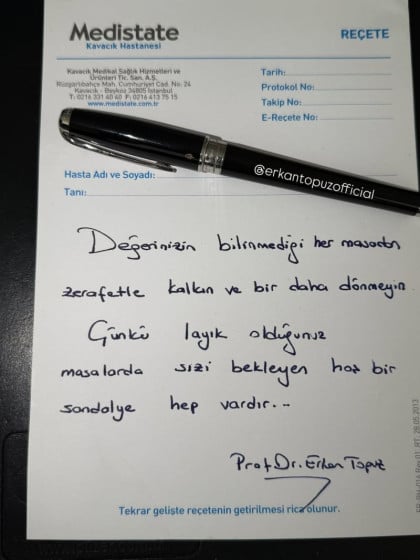 Medistate
Kavacık Hastanesi
REÇETE
Kavacık Medikal Sağlık Hizmetleri ve
Ürünleri Tic. San. A.Ş.
Rüzgarlıbahçe Mah. Cumhuriyet Cad. No: 24
Kavacık - Beykoz 34805 İstanbul
T: 0216 331 40 40 F: 0216 413 75 15
www.medistate.com.tr
Tarih:
Protokol No:
Takip No:
E-Reçete No:
@erkantopuzofficial
Hasta Adı ve Soyadı:
Tanı:
Değerinizin bilinmediği her masadan
zerafetle kalkın ve bir daha dönmeyin
Çünkü layık olduğunuz
masalarda sizi bekleyen hoş bir
sandalye hep vardır...
Prof. Dr. Erkan Topuz
Tekrar gelişte reçetenin getirilmesi rica olunur.